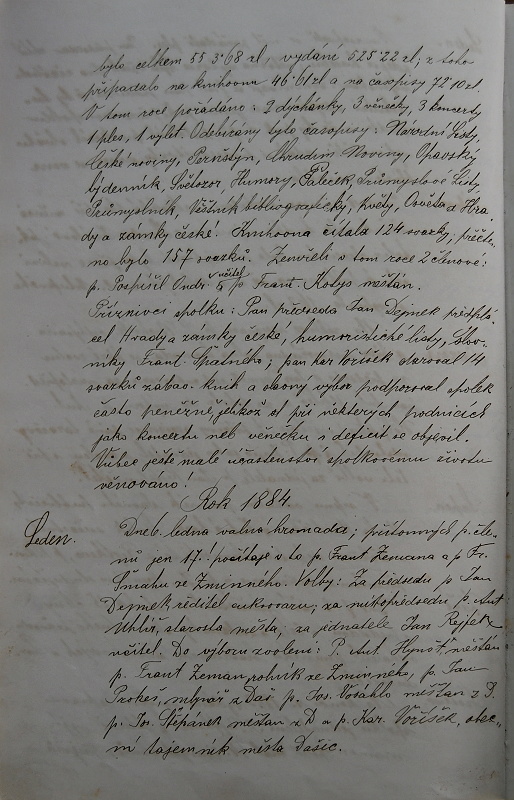 bylo celkem 553·68 zl, vydání 525·22 zl; z toho
připadalo na knihovnu 46·61 zl a na časopisy 72·10 zl.
V tom roce pořádáno: 2 dychánky, 3 věnečky, 3 koncerty
1 ples, 1 výlet. Odebírány bylo časopisy: Národní Listy,
České noviny, Pernštýn, Chrudim. Noviny, Opavský
týdenník, Světozor, Humory, Paleček, Průmyslové Listy,
Průmyslník, Věstník bibliografický, Květy, Osvěta a Hra-
dy a zámky české. Knihovna čítala 124 svazky, přečte-
no bylo 157 svazků. Zemřeli v tom roce 2 členové:
p. Pospíšil Ondř. učitel a p. Frant. Kobys měšťan.
Příznivci spolku: Pan předseda Jan Dejmek předplá-
cel Hrady a zámky české, humoristické listy, Slov-
níky Frant. Špatného; pan Kar Voříšek daroval 14
svazků zábav. knih a obecný výbor podporoval spolek
často peněžně, jelikož st při některých podnicích
jako koncertu neb věnečku i deficit se objevil.
Vůbec ještě malé účastenství spolkovému životu
věnováno!
Rok 1884.
Leden.
Dne 6. ledna valná hromada; přítomných p. čle-
nů jen 17. počítaje v to p. Frant Zemana a p. Fr.
Šmahu ze Zminného. Volby: Za předsedu p Jan
Dejmek ředitel cukrovaru; za místopředsedu p. Ant
Uhlíř, starosta města; za jednatele Jan Rejfek
učitel. Do výboru zvoleni: P. Ant. Hynšt, měšťan
p. Frant Zeman, rolník ze Zminného, p. Jan
Prokeš, mlynář z Daš p. Jos. Vosáhlo měšťan z D.
p. Jos. Štěpánek měšťan z D a p. Kar. Voříšek, obec-
ní tajemník města Dašic.